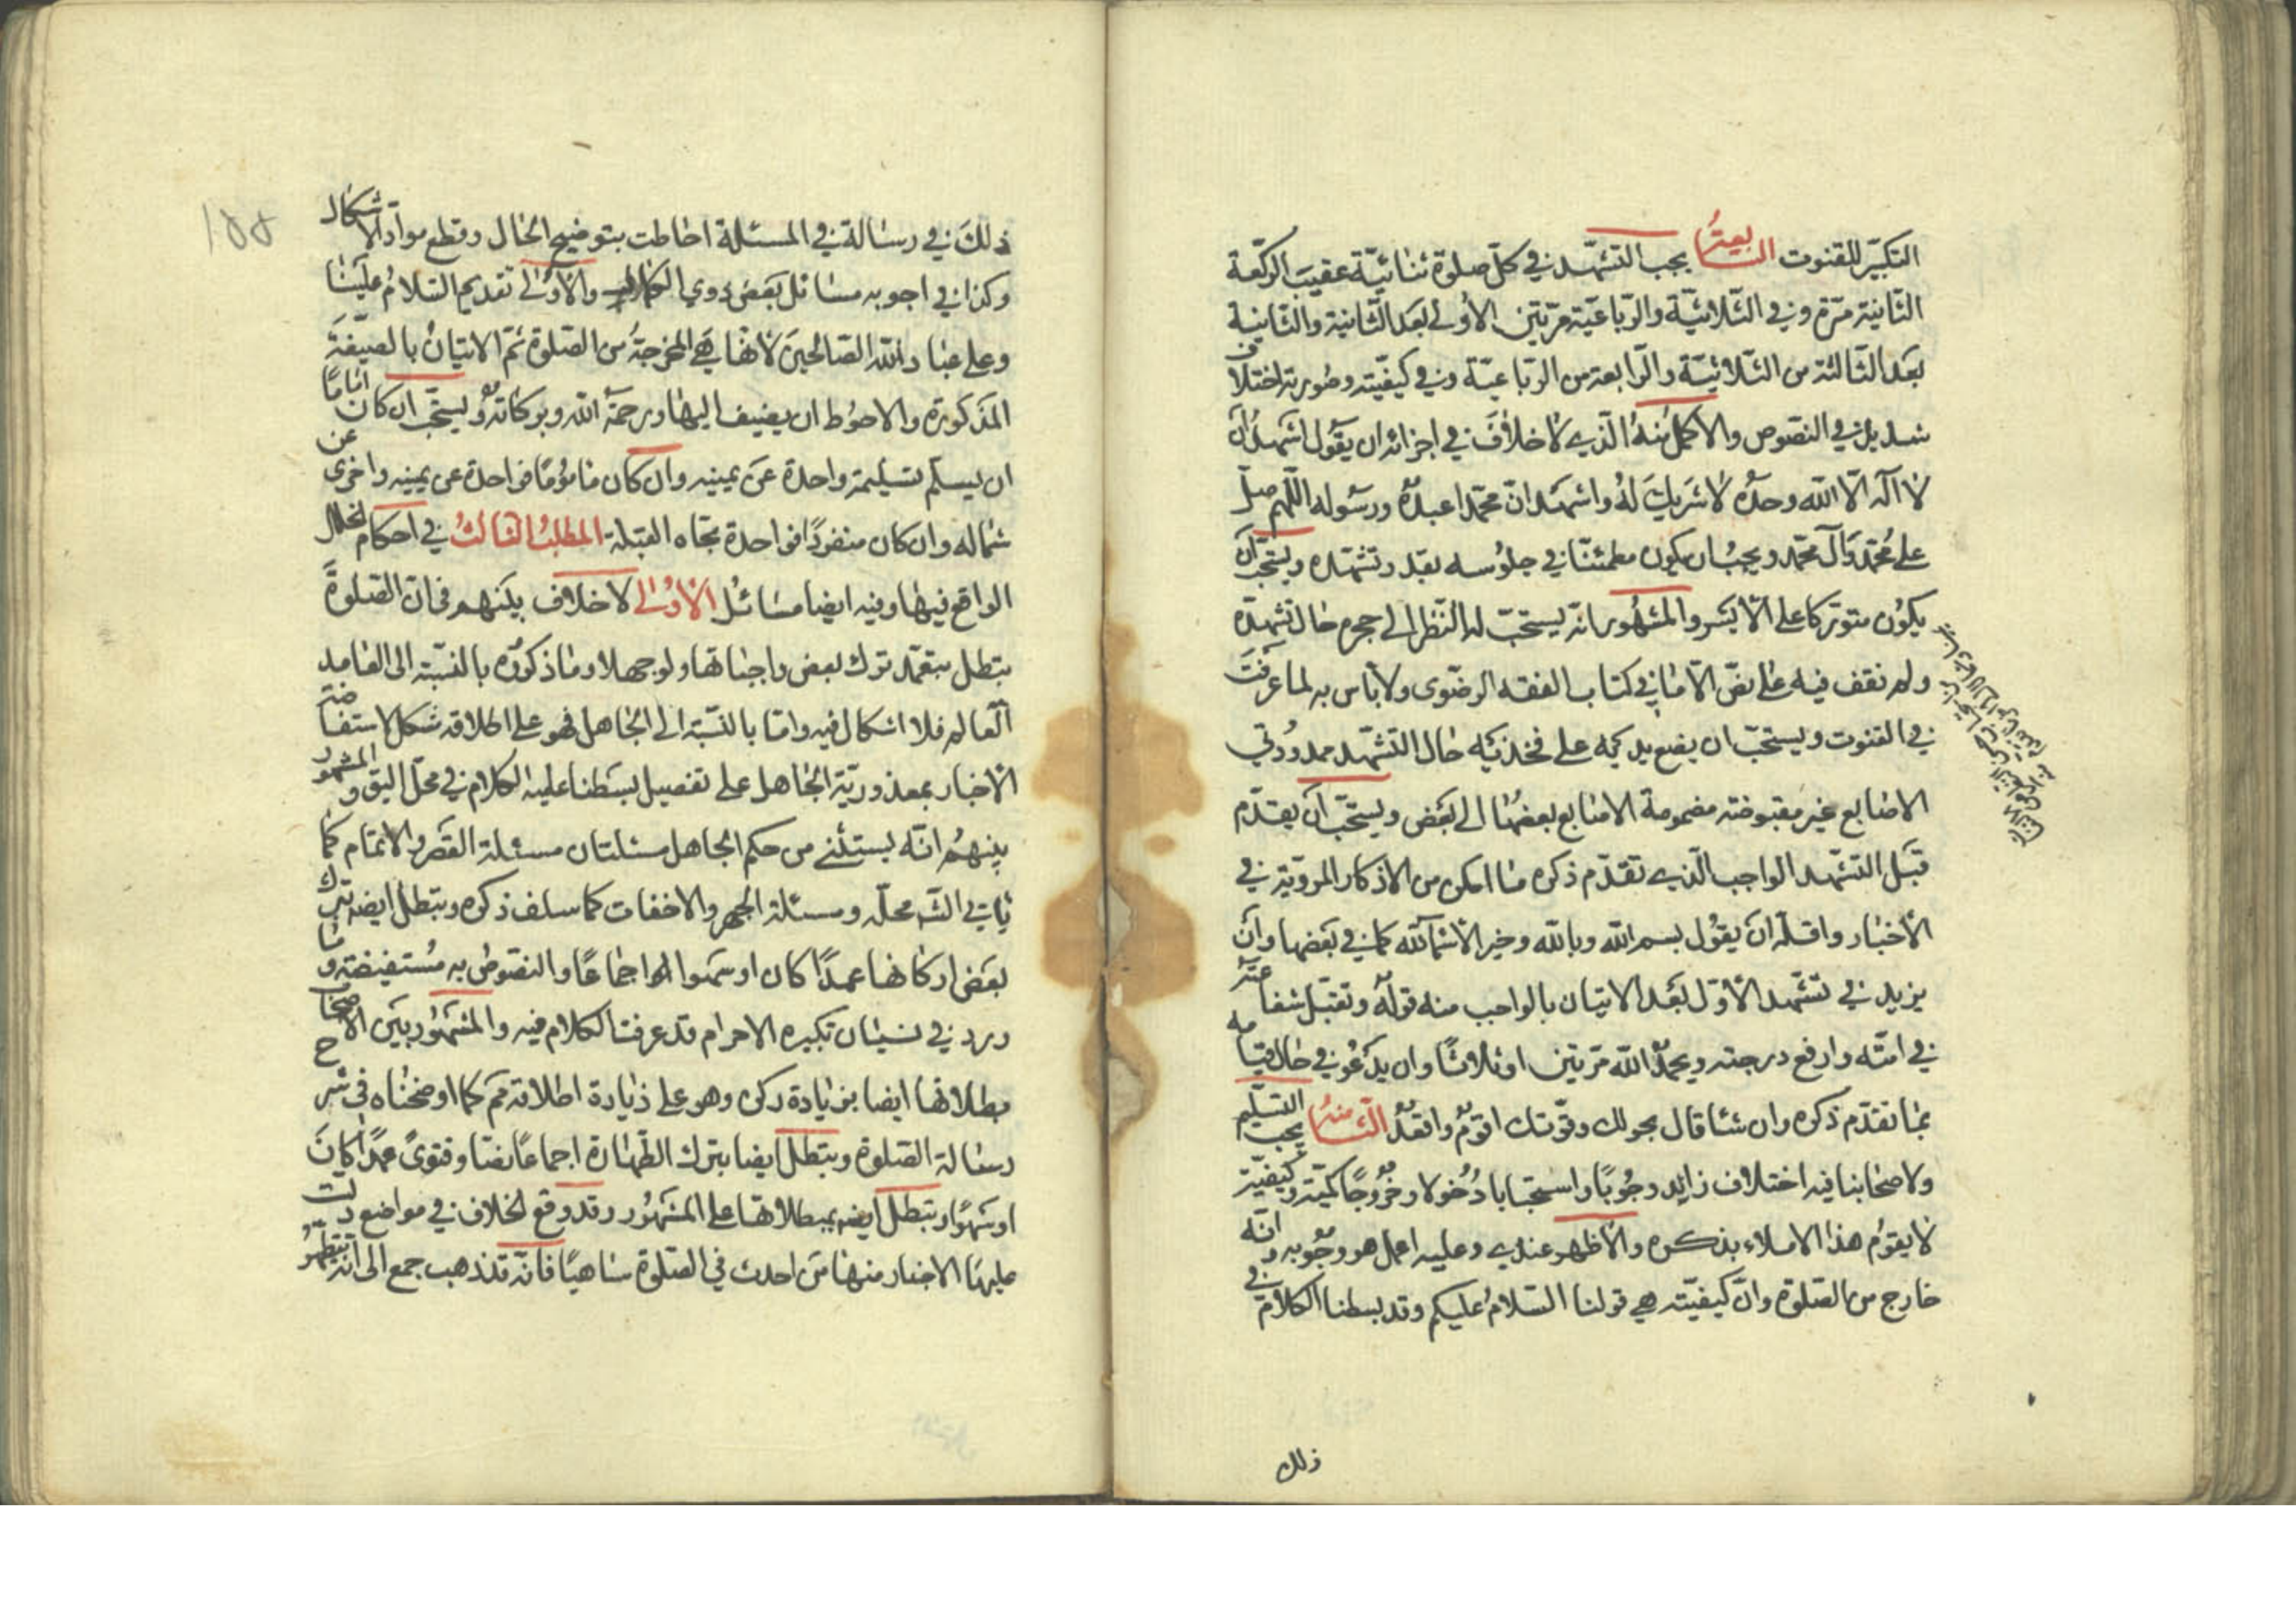 التكبير للقنوت السابعة يجب التشهد في كل صلوة ثنائية عقيب الركعة
الثانية مرة وفي الثلاثية والرباعية مرتين الأولى بعد الثانية والثانية
بعد الثالثة من الثلاثية والرابعة من الرباعية وفي كيفيته وصورته اختلاف
شديد في النصوص والاكمل منه الذي لا خلاف في اجزائه ان يقول اشهد ان
لا اله الا الله وحده لا شريك له واشهد ان محمدا عبده ورسوله اللهم صل
على محمد وآل محمد ويجب ان يكون مطمئنا في جلوسه بقدر تشهده ويستحب ان
يكون متوركا على الايسر والمشهور انه يستحب له النظر الى حجره حال تشهده
ولم نقف فيه على نص الا ما في كتاب الفقه الرضوي ولا باس به لما عرفت
في القنوت ويستحب ان يضع يديه على فخذيه حال التشهد ممدودتي
الاصابع غير مقبوضته مضمومة الاصابع بعضها الى بعض ويستحب ان يقدم
قبل التشهد الواجب الذي تقدم ذكره ما امكن من الاذكار المروية في
الأخبار واقله ان يقول بسم الله وبالله وخير الاسماء لله كما في بعضها وان
يزيد في تشهد الأول بعد الاتيان بالواجب منه قوله وتقبل شفاعته
في امته وارفع درجته ويحمد الله مرتين او ثلاثا وان يدعو في حال قيامه
بما تقدم ذكره وان شا قال بحولك وقوتك اقوم واقعد الثامنة يجب التسليم
ولاصحابنا فيه اختلاف زايد وجوبا واستحبابا دخولا وخروجا كمية وكيفية
لا يقوم هذا الاملاء بذكره والأظهر عندي وعليه اعمل هو وجوبه وانه
خارج من الصلوة وان كيفيته هي قولنا السلام عليكم وقد بسطنا الكلام في
ذلك
ذلك في رسالة في المسئلة احاطت بتوضيح الحال وقطع مواد الاشكال
وكذا في اجوبه مسائل بعض ذوي والأولى تقديم السلام علينا
وعلى عباد الله الصالحين لانها هي المخرجة من الصلوة ثم الاتيان بالصيغة
المذكورة والاحوط ان يضيف اليها ورحمة الله وبركاته ويستحب ان كان اماما
ان يسلم تسليمة واحدة عن يمينه وان كان ماموما فواحدة عن يمينه واخرى عن
شماله وان كان منفردا فواحدة تجاه القبلة المطلب الثالث في احكام الخلل
الواقع فيها وفيه ايضا مسائل الأولى لا خلاف بينهم في ان الصلوة
تبطل بتعمد ترك بعض واجباتها ولو جهلا وما ذكروه بالنسبة الى العامد
العالم فلا اشكال فيه واما بالنسبة الى الجاهل فهو على اطلاقه مشكل لاستفاضة
الأخبار بمعذورية الجاهل على تفصيل بسطنا عليه الكلام في محل اليق والمشهور
بينهم انه يستثنى من حكم الجاهل مسئلتان مسئلة القصر والاتمام كما
ياتي في محله ومسئلة الجهر والاخفات كما سلف ذكره وتبطل ايضه بترك
بعض اركانها عمدا كان او سهوا اجماعا والنصوص به مستفيضة وما
ورد في نسيان تكبيره الاحرام قد عرفت الكلام فيه والمشهور بين الأصحاب
بطلانها ايضا بزيادة ركن وهو على اطلاقه مم كما اوضحناه في شرح
رسالة الصلوة وتبطل ايضا بترك الطهارة اجماعا نصا وفتوى عمدا كان
او سهوا وتبطل ايضه بمبطلاتها على المشهور وقد وقع الخلاف في مواضع دلت
عليها الاخبار منها من احدث في الصلوة ساهيا فانه قد ذهب جمع الى انه يتطهر